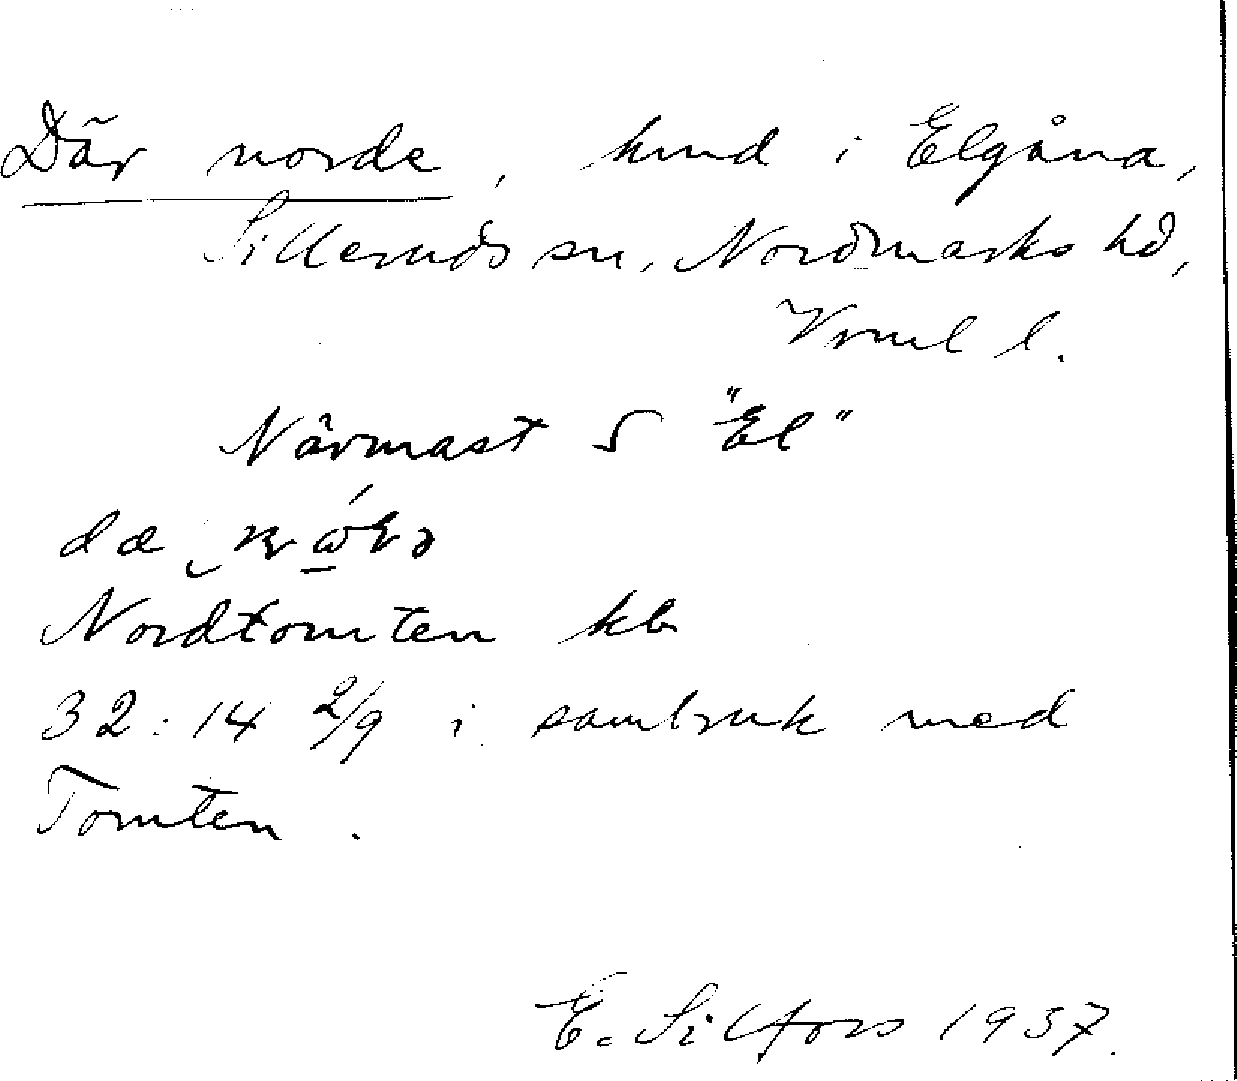 Där norde, hmd i Elgåna,
Silleruds sn, Nordmarks hd,
Vrml l.
Närmast S "El"
dæ
Nordtomten kb
32:14 2/9 i sambruk med
Tomten.
E. Silfors 1937.